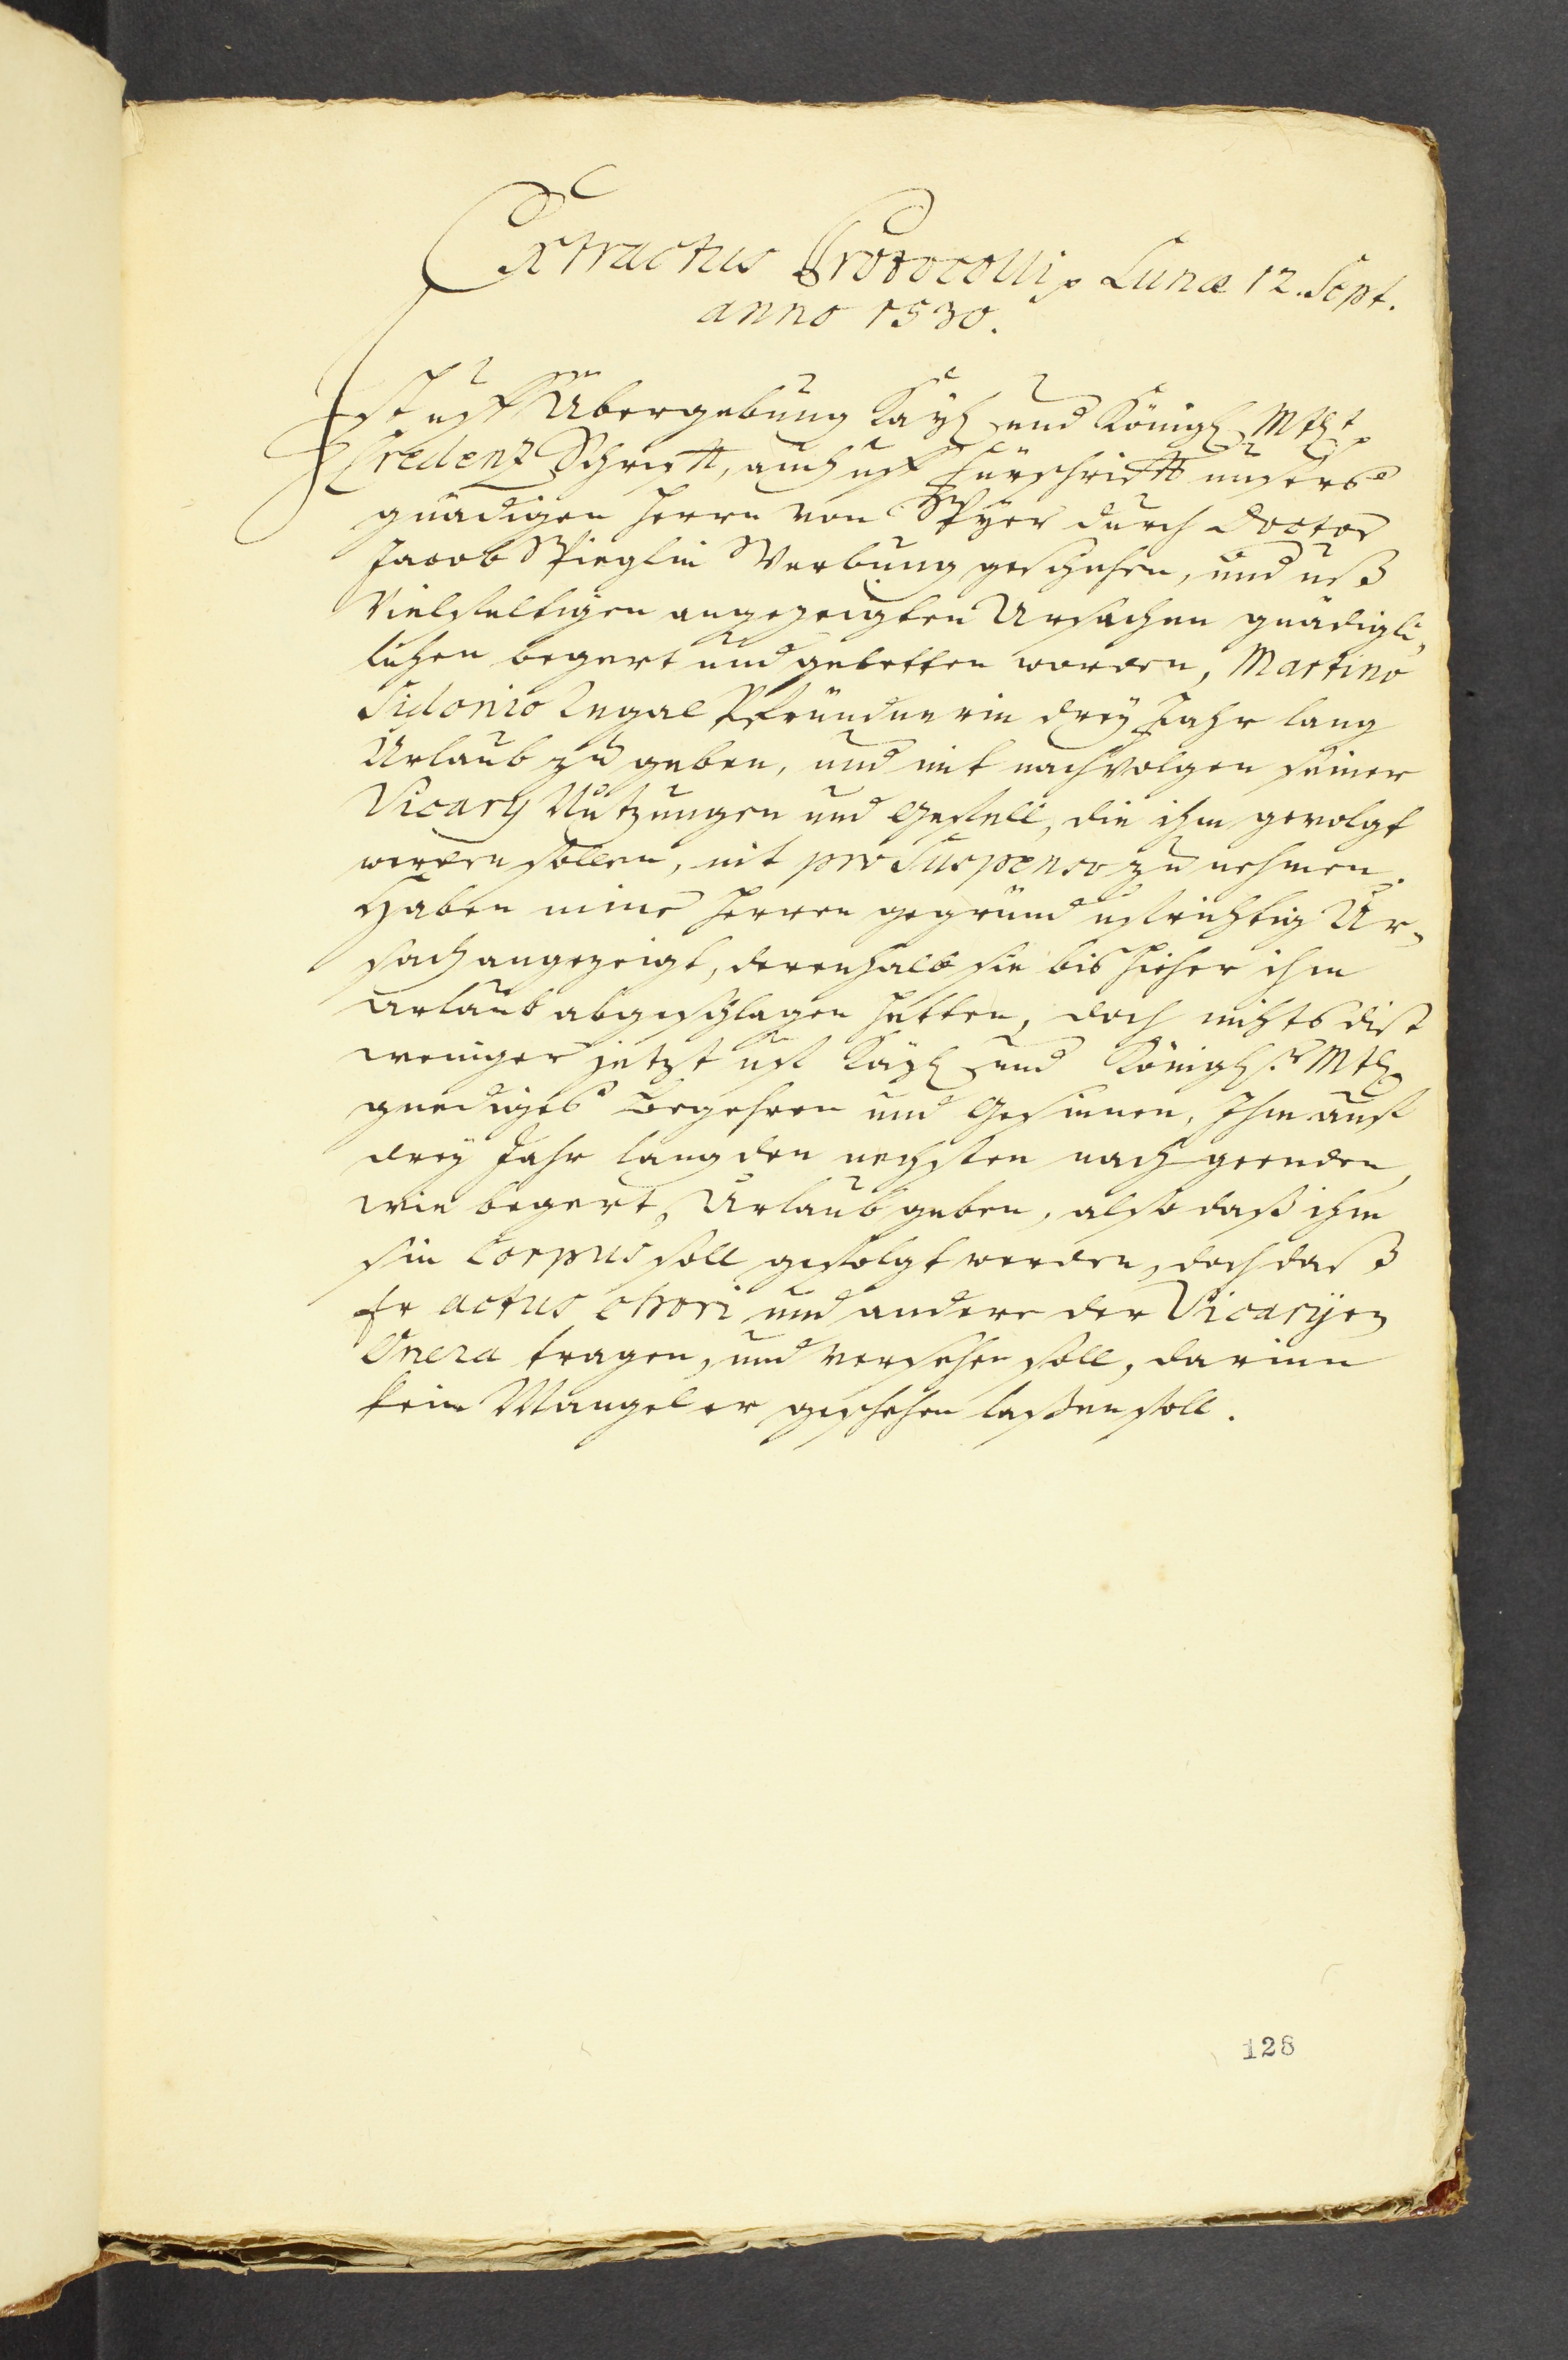 Extractus Protocolli, Lunæ 12. Sept.
anno 1530.
Ist uff Übergebung Kaÿl. und Königl. Mtt.
Credentz Schrifft, auch uff Fürschrifft unsers
gnädigen Herrn von Speÿer durch Doctor
Jacob Spieglin Werbung geschehen, und uß
vielfaltigen angezeigten Ursachen gnädigli,
lichen begert und gebetten worden, Martino
Sidonio Regal Pfründnerin dreÿ Jahr lang
Urlaub zu geben, und mit nachvolgen seiner
Vicarÿ Nutzungen und Gefell, die ihm gevolgt
werden sollen, nit pro Suspenso zu nehmen.
Haben mine Herren gegründ ufrichtig Ur-
sach angezeigt, derenhalb sie bis hieher ihm
Urlaub abgeschlagen hetten, doch nichts dist
weniger jetzt uff Kaÿl. und Königl.r Mtt.
gnediges Begehren und Gesinnen, Ihm auff
dreÿ Jahr lang den nechsten nach geenden,
wie begert, Urlaub geben, also daß ihm
sin Corpus soll gefolgt werden, doch daß
Er actus chori und andere der Vicarÿen
Onera tragen, und versehen soll, darinn
kein Mangel er geschehen laßen soll.
128